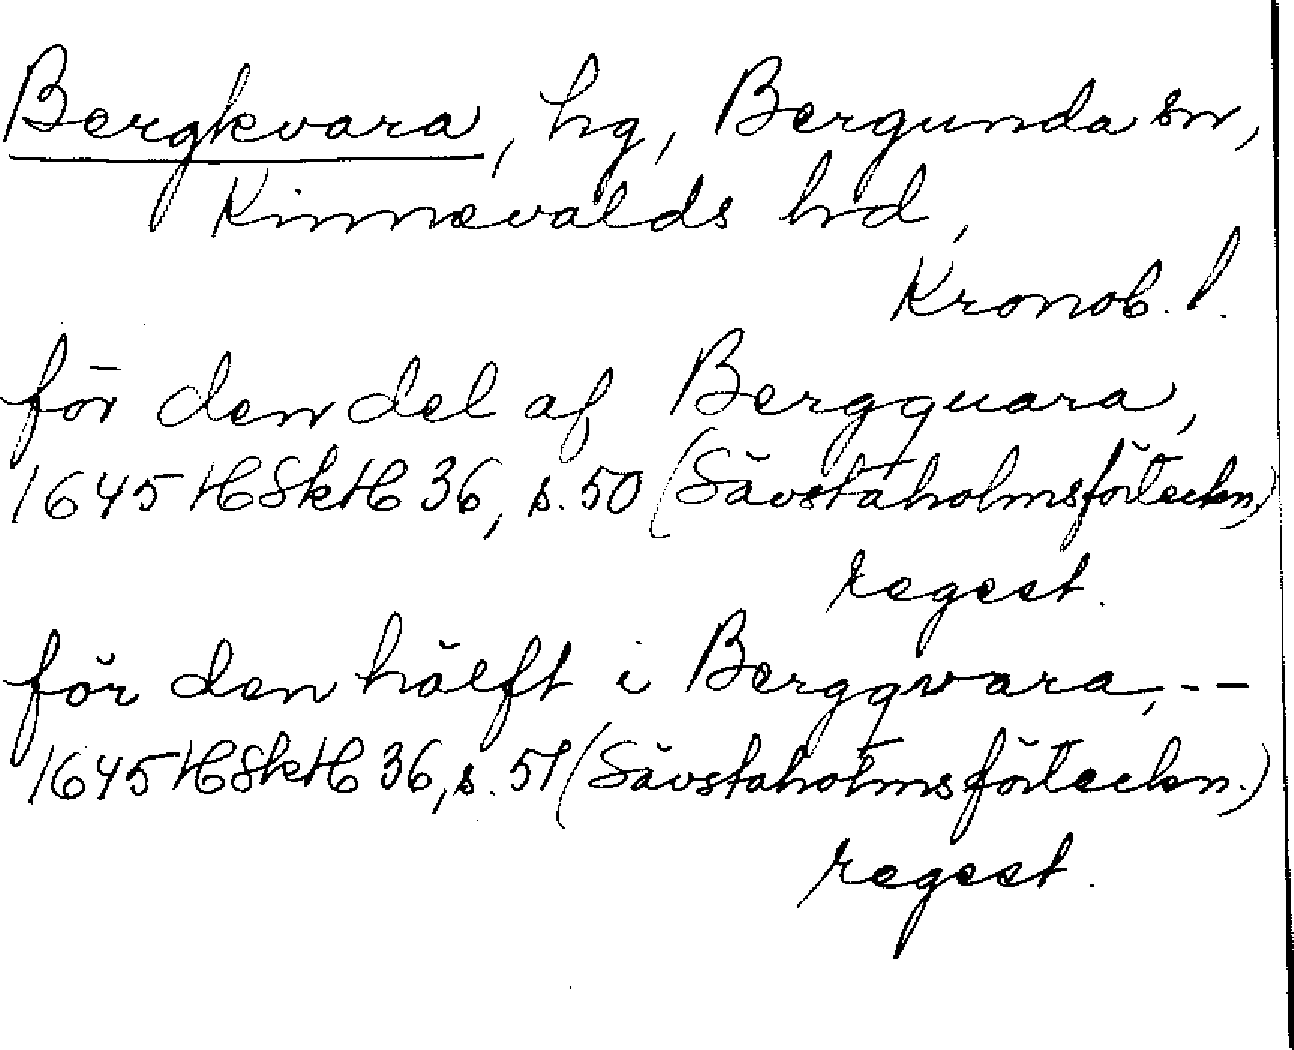 Bergkvara, hg, Bergunda sn,
Kinnevalds hd,
Kronob. l.
för den del af Bergquara,
1645 HSkH 36, s. 50 (Sävstaholmsförteckn.)
regest.
för den hälft i Bergqvara, --
1645 HSkH 36, s. 51 (Sävstaholmsförteckn.)
regest.